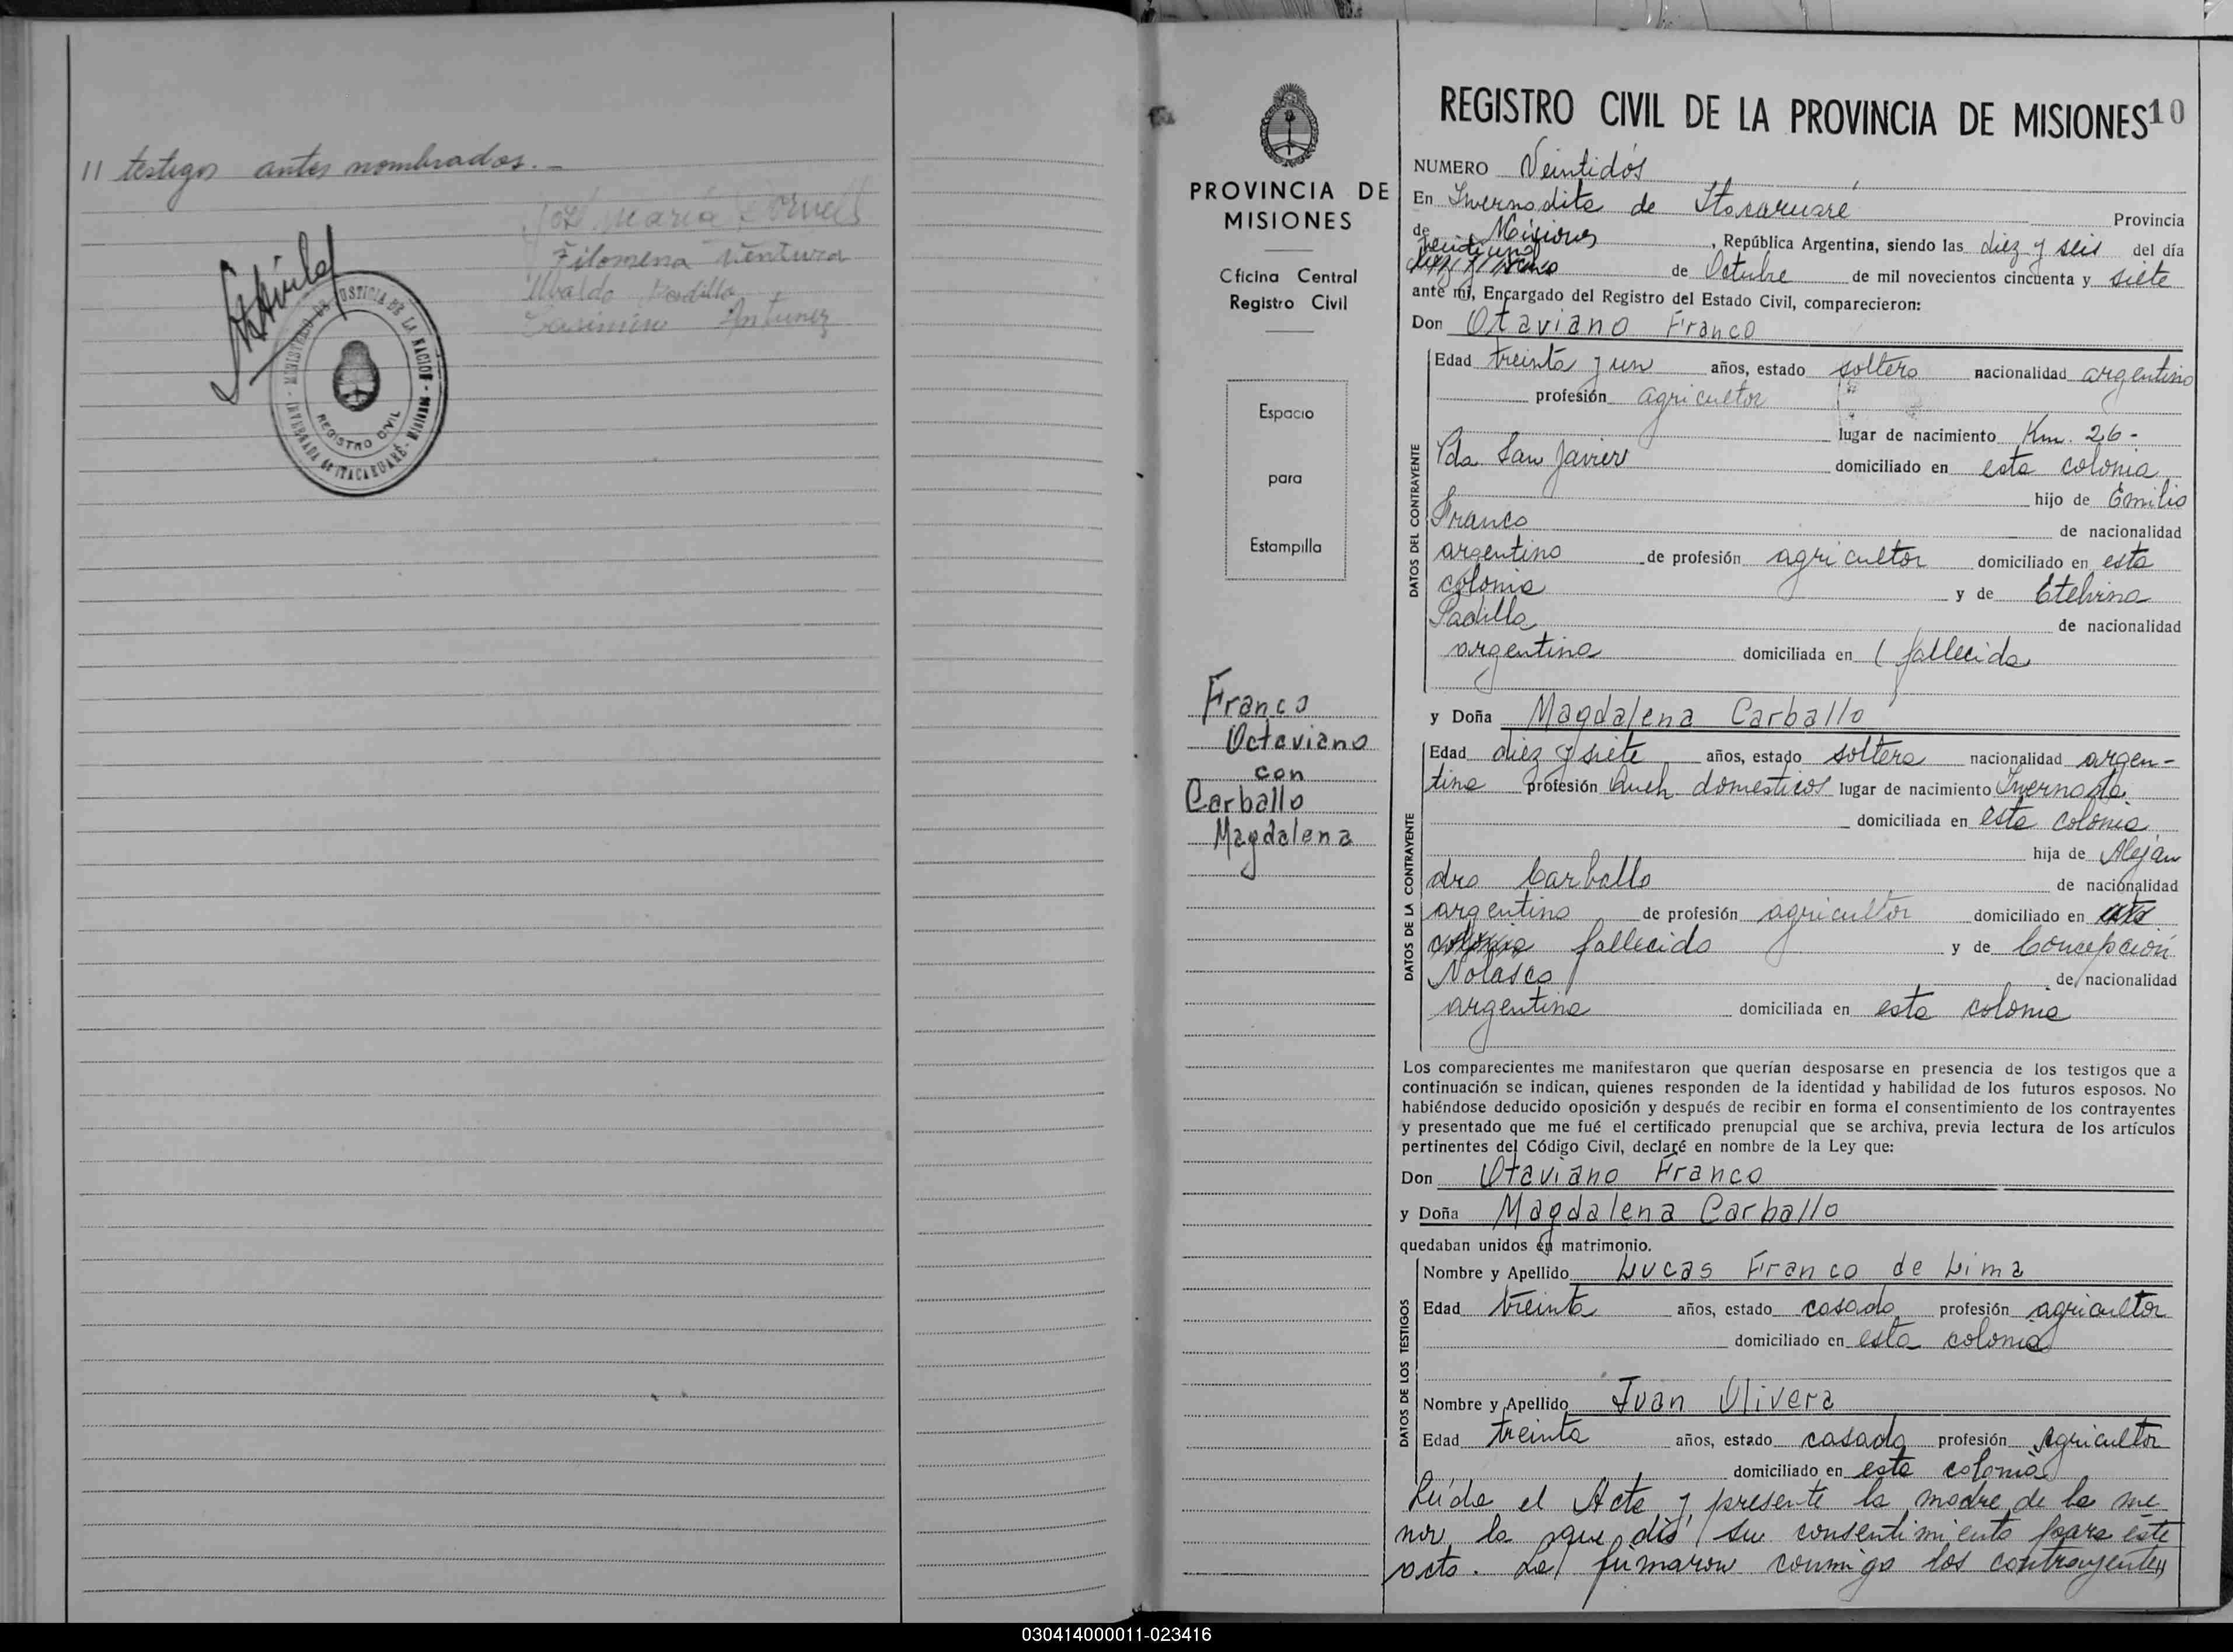 " testigos antes nombrados. -
José María
Filomena Ventura
Ubaldo Padilla
Casimiro Antunez
MINISTERIO DE JUSTICIA DE LA NACION - INVERNADA de ITACARUARÉ - Misiones -
REGISTRO CIVIL
PROVINCIA DE
MISIONES
Oficina Central
Registro Civil
Espacio
para
Estampilla
Franco
Octaviano
con
Carballo
Magdalena
REGISTRO CIVIL DE LA PROVINCIA DE MISIONES 10
NUMERO Veintidós
En Invernadita de Itacaruaré Provincia
de Misiones, República Argentina, siendo las diez y seis del día
veintiuno
de Octubre de mil novecientos cincuenta y siete
ante mí, Encargado del Registro del Estado Civil, comparecieron:
Don Otaviano Franco
DATOS DEL CONTRAYENTE
Edad treinta y un años, estado soltero nacionalidad argentino
profesión agricultor
lugar de nacimiento Km. 26 -
Pda San Javier domiciliado en esta colonia
hijo de Emilio
Franco de nacionalidad
argentino de profesión agricultor domiciliado en esta
colonia y de Etelvina
Padilla de nacionalidad
argentina domiciliada en (fallecida
y Doña Magdalena Carballo
DATOS DE LA CONTRAYENTE
Edad diez y siete años, estado soltera nacionalidad argen-
tina profesión Queh. domesticos lugar de nacimiento Invernada
domiciliada en esta colonia
hija de Alejan
dro Carballo de nacionalidad
argentino de profesión agricultor domiciliado en esta
colonia fallecido y de Concepción
Nolasco de nacionalidad
argentina domiciliada en esta colonia
Los comparecientes me manifestaron que querían desposarse en presencia de los testigos que a
continuación se indican, quienes responden de la identidad y habilidad de los futuros esposos. No
habiéndose deducido oposición y después de recibir en forma el consentimiento de los contrayentes
y presentado que me fué el certificado prenupcial que se archiva, previa lectura de los artículos
pertinentes del Código Civil, declaré en nombre de la Ley que:
Don Otaviano Franco
y Doña Magdalena Carballo
quedaban unidos en matrimonio.
DATOS DE LOS TESTIGOS
Nombre y Apellido Lucas Franco de Lima
Edad treinta años, estado casado profesión agricultor
domiciliado en esta colonia
Nombre y Apellido Juan Olivera
Edad treinta años, estado casado profesión Agricultor
domiciliado en esta colonia
Leída el Acta y presente la madre de la me
nor la que dió su consentimiento para este
acto. La firmaron conmigo los contrayentes "
030414000011-023416